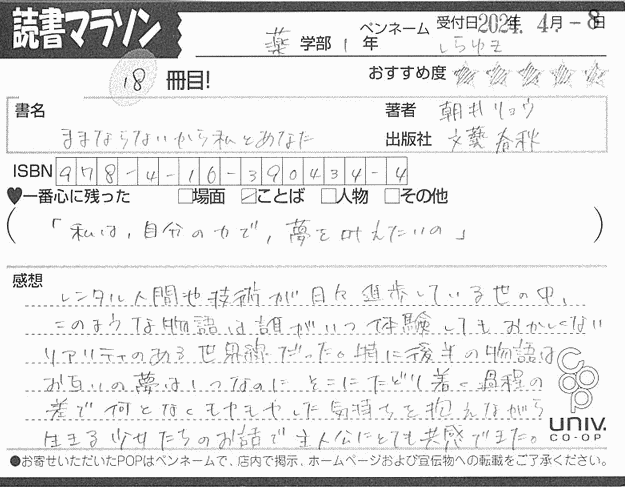 読書マラソン
薬学部1年
ペンネーム しらゆき
受付日2024年4月-8日
18冊目!
おすすめ度 ★★★★★
書名
ままならないから私とあなた
著者 朝井リョウ
出版社 文藝春秋
ISBN 978-4-16-390434-4
♥一番心に残った □場面 ☑ことば □人物 □その他
(「私は、自分の力で、夢を叶えたいの」)
感想
レンタル人間や技術が日々進歩している世の中、
このような物語は誰がいつ体験してもおかしくない
リアリティのある世界線だった。特に後半の物語は
お互いの夢は1つなのに、そこにたどり着く過程の
差で何となくもやもやした気持ちを抱えながら
生きる少女たちのお話で主人公にとても共感できた。
coop
UNIV.
CO-OP
●お寄せいただいたPOPはペンネームで、店内で掲示、ホームページおよび宣伝物への転載をご了承ください。